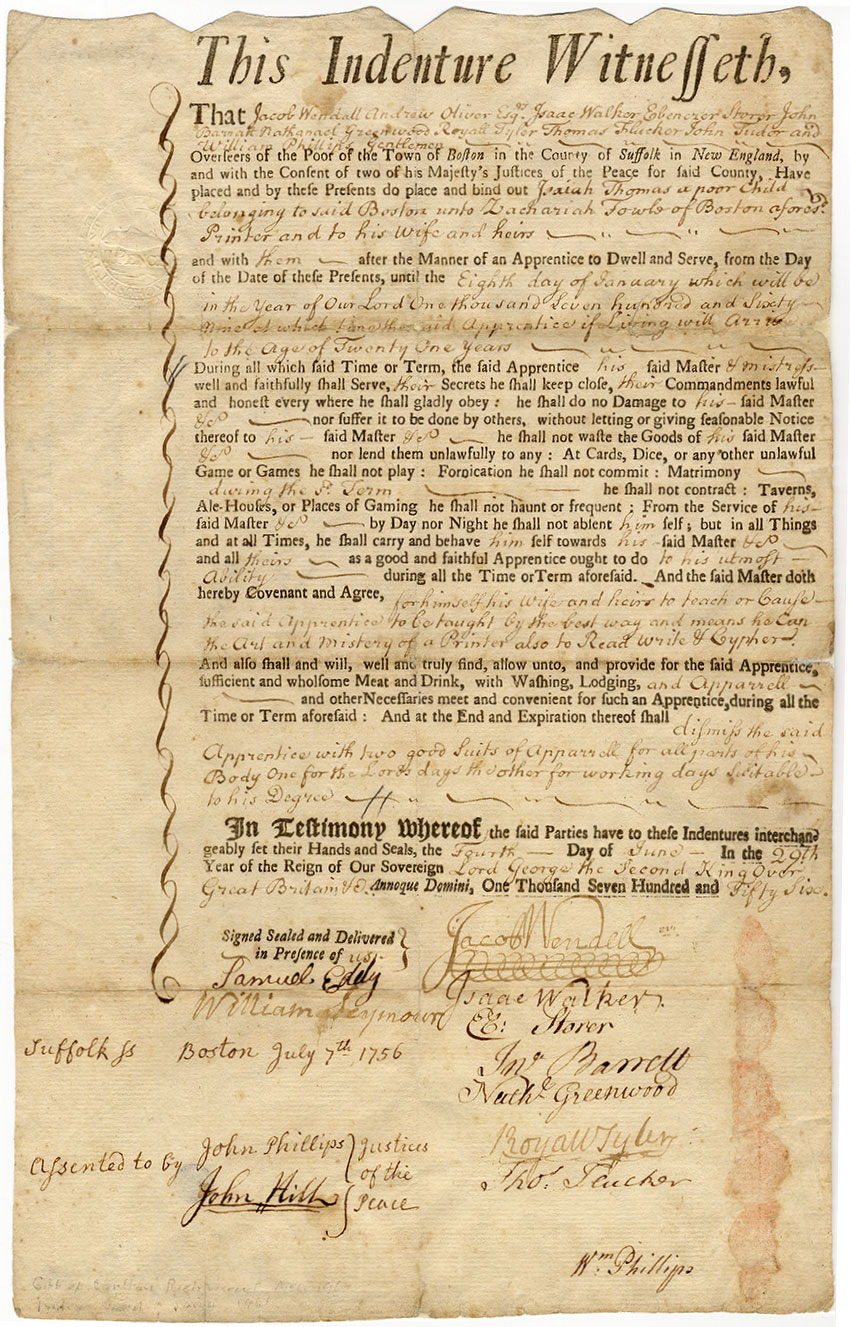 This Indenture Witneſſeth,
That Jacob Wendall Andrew Oliver Esqrs Isaac Walker Ebenezer Storer John
Barratt Nathanael Greenwood Royall Tyler Thomas Flucker John Tudor and
William Phillips Gentlemen
Overſeers of the Poor of the Town of Boston in the County of Suffolk in New England, by
and with the Conſent of two of his Majeſty's Juſtices of the Peace for ſaid County, Have
placed and by theſe Preſents do place and bind out Isaiah Thomas a poor Child
belonging to said Boston unto Zachariah Fowle of Boston aforesd.
Printer and to his Wife and heirs
and with them after the Manner of an Apprentice to Dwell and Serve, from the Day
of the Date of theſe Preſents, until the Eighth day of January which will be
in the Year of Our Lord One thousand Seven hundred and Sixty
Nine at which time the said Apprentice if Living will Arrive
to the Age of Twenty One Years
During all which ſaid Time or Term, the ſaid Apprentice his ſaid Maſter & Mistress
well and faithfully ſhall Serve, their Secrets he ſhall keep cloſe, their Commandments lawful
and honeſt every where he ſhall gladly obey : he ſhall do no Damage to his ſaid Maſter
&c nor ſuffer it to be done by others, without letting or giving ſeaſonable Notice
thereof to his ſaid Maſter &c he ſhall not waſte the Goods of his ſaid Maſter
&c nor lend them unlawfully to any : At Cards, Dice, or any other unlawful
Game or Games he ſhall not play : Fornication he ſhall not commit : Matrimony
during the sd. Term he ſhall not contract : Taverns,
Ale-Houſes, or Places of Gaming he ſhall not haunt or frequent : From the Service of his
ſaid Maſter &c by Day nor Night he ſhall not abſent him ſelf ; but in all Things
and at all Times, he ſhall carry and behave him ſelf towards his ſaid Maſter &c
and all theirs as a good and faithful Apprentice ought to do to his utmost
Ability during all the Time or Term aforeſaid. And the ſaid Maſter doth
hereby Covenant and Agree, for himself his Wife and heirs to teach or Cause
the said Apprentice to be taught by the best way and means he Can
the Art and Mistery of a Printer also to Read write & Cypher.
And alſo ſhall and will, well and truly find, allow unto, and provide for the ſaid Apprentice,
ſufficient and wholſome Meat and Drink, with Waſhing, Lodging, and Apparrell
and other Neceſſaries meet and convenient for ſuch an Apprentice, during all the
Time or Term aforeſaid : And at the End and Expiration thereof ſhall dismiss the said
Apprentice with two good Suits of Apparrell for all parts of his
Body One for the Lords days the other for working days Suitable
to his Degree
In Teſtimony whereof, the ſaid Parties have to theſe Indentures interchan-
geably ſet their Hands and Seals, the Fourth Day of June In the 29th
Year of the Reign of Our Sovereign Lord George the Second King Over
Great Britain &c. Annoque Domini, One Thouſand Seven Hundred and Fifty Six.
Signed Sealed and Delivered
in Preſence of us
Samuel Eddy
William Seymour
Jacob Wendell
Isaac Walker.
Eb: Storer
Jno. Barrett
Nathl. Greenwood
Royall Tyler
Thos. Flucker
Wm. Phillips
Suffolk ss Boston July 7th 1756
Assented to by John Phillips
John Hill
Justices
of the
Peace